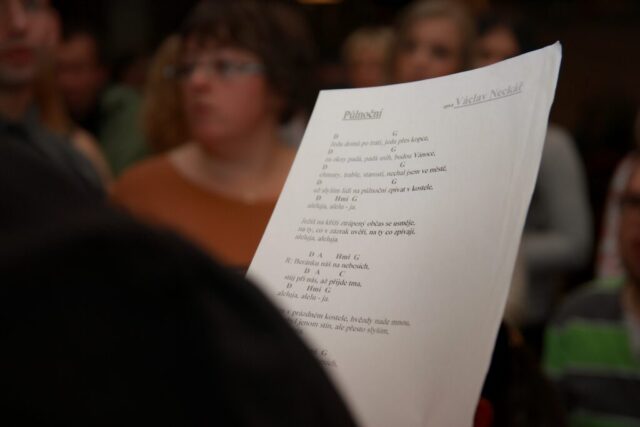 Půlnoční Václav Neckář
D G
Jedu domů po trati, jedu přes kopce,
D G
za okny padá, padá sníh, budou Vánoce,
D G
chmury, trable, starosti, nechal jsem ve městě,
D G
až slyším lidi na půlnoční zpívat v kostele,
D Hmi G
aleluja, alelu - ja.
Ježíš na kříži ztrápený občas se usměje,
na ty, co v zázrak uvěří, na ty co zpívají,
aleluja, aleluja
D A Hmi G
R: Beránku náš na nebesích,
D A C
stůj při nás, až přijde tma,
D Hmi G
aleluja, alelu - ja.
v prázdném kostele, hvězdy nade mnou,
jenom stín, ale přesto slyším,
G